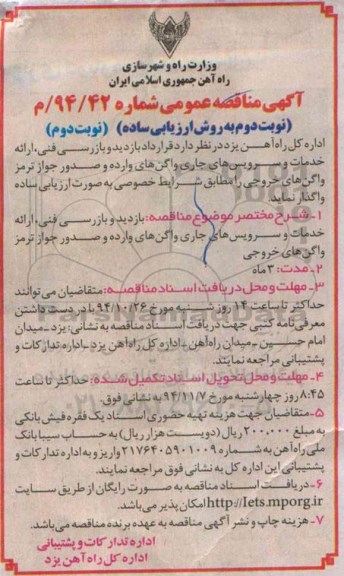 وزارت راه و شهرسازی
راه آهن جمهوری اسلامی ایران
آگهی مناقصه عمومی شماره ۹۴/۴۲/م
(نوبت دوم به روش ارزیابی ساده) (نوبت دوم)
اداره کل راه آهن یزد در نظر دارد قرارداد بازدید و بازرسی فنی، ارائه
خدمات و سرویس های جاری واگن های وارده و صدور جواز ترمز
واگن های خروجی را مطابق شرایط خصوصی به صورت ارزیابی ساده
واگذار نماید.
۱- شرح مختصر موضوع مناقصه: بازدید و بازرسی فنی، ارائه
خدمات و سرویس های جاری واگن های وارده و صدور جواز ترمز
واگن های خروجی
۲- مدت: ۳ ماه
۳- مهلت و محل دریافت اسناد مناقصه: متقاضیان می توانند
حداکثر تا ساعت ۱۴ روز شنبه مورخ ۹۴/۱۰/۲۶ با در دست داشتن
معرفی نامه کتبی جهت دریافت اسناد مناقصه به نشانی: یزد ـ میدان
امام حسین ـ میدان راه آهن ـ اداره کل راه آهن یزد ـ اداره تدارکات و
پشتیبانی مراجعه نمایند.
۴- مهلت و محل تحویل اسناد تکمیل شده: حداکثر تا ساعت
۸:۴۵ روز چهارشنبه مورخ ۹۴/۱۱/۷ به نشانی فوق.
۵- متقاضیان جهت هزینه تهیه حضوری اسناد یک فقره فیش بانکی
به مبلغ ۲۰۰،۰۰۰ ریال (دویست هزار ریال) به حساب سیبا بانک
ملی راه آهن به شماره ۲۱۷۶۴۰۵۹۰۱۰۰۹ واریز و به اداره تدارکات و
پشتیبانی این اداره کل به نشانی فوق مراجعه نمایند.
۶- دریافت اسناد مناقصه به صورت رایگان از طریق سایت
http://Iets.mporg.ir امکان پذیر می باشد.
۷- هزینه چاپ و نشر آگهی مناقصه به عهده برنده مناقصه می باشد.
اداره تدارکات و پشتیبانی
اداره کل راه آهن یزد